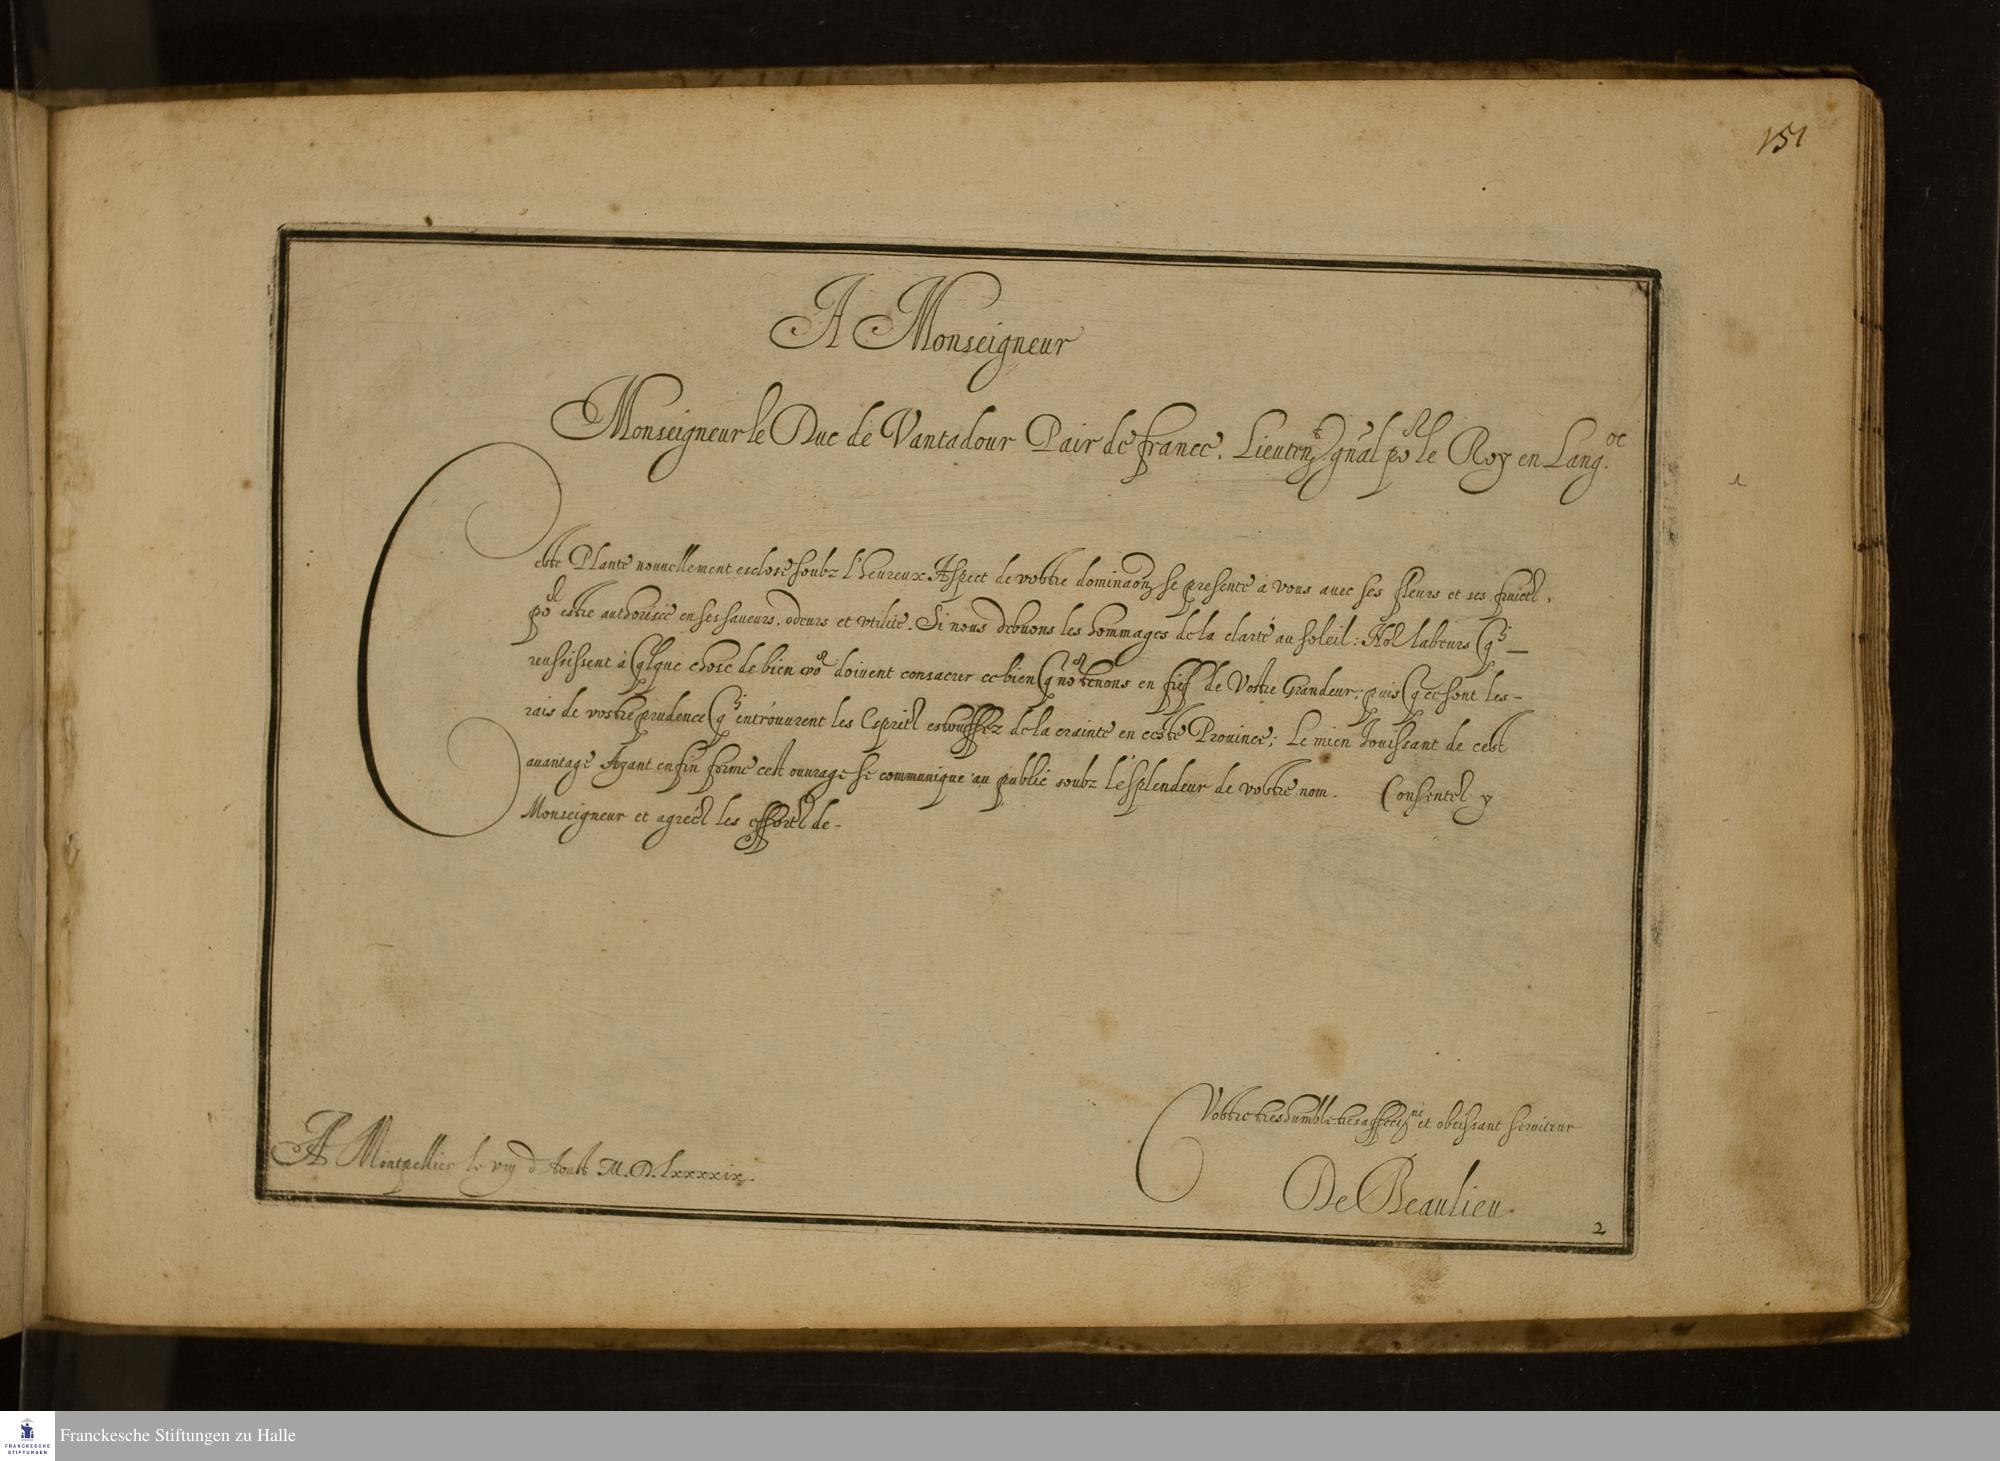 151
A Monseigneur
Monseigneur le Duc de Vantadour Pair de france, Lieuten.t gñal po.r le Roy en Lang.oc
Ceste Plante nouuellement esclose soubz l'heureux Aspect de vostre dominaõn se presente à vous auec ses fleurs et ses fruictz,
po.r estre authorisée en ses saueurs, odeurs et vtilité. Si nous debuons les hommages de la clarté au soleil: Noz labeurs q.i
reussissent à qlque chose de bien po.r doiuent consacrer ce bien q no.s tenons en fief de Vostre Grandeur; puis q ce sont les
rais de vostre prudence q.i entr'ouurent les Espritz estouffez de la crainte en ceste Prouince; Le mien Jouissant de cest
auantage Ayant enfin formé cest ouurage se communique au public soubz l'esplendeur de vostre nom. Consentez y
Monseigneur et agréez les effortz de
Vostre tres humble tres affect.né et obeissant seruiteur
A Montpellier le viij d'Aoust M.D.lxxxxix.
De Beaulieu.
2
Franckesche Stiftungen zu Halle
FRANCKESCHE
STIFTUNGEN